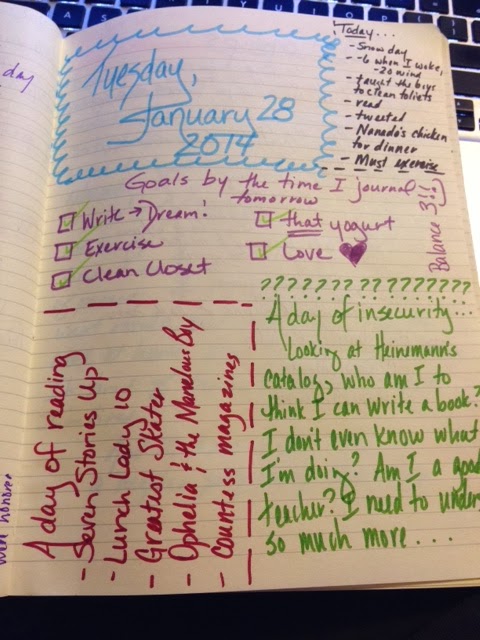 day
Tuesday,
January 28
2014
Today...
- Snow day
- -6 when I woke,
-20 wind
- taught the boys
to clean toilets
- read
- tweeted
- Nanado's chicken
for dinner
- Must exercise
Goals by the time I journal
tomorrow
Write → Dream!
Exercise
Clean Closet
that yogurt
Love
Balance 3!!
????????????????
A day of reading
- Seven Stories Up
- Lunch Lady 10
- Greatest Skater
- Ophelia & the Marvelous Boy
- Countless magazines
A day of insecurity...
Looking at Heinemann's
catalog, who am I to
think I can write a book?
I don't even know what
I'm doing? Am I a good
teacher? I need to unders
so much more...